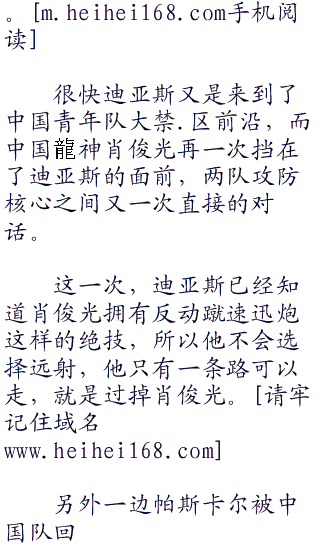 。[m.heihei168.com手机阅
读]
很快迪亚斯又是来到了
中国青年队大禁.区前沿，而
中国龍神肖俊光再一次挡在
了迪亚斯的面前，两队攻防
核心之间又一次直接的对
话。
这一次，迪亚斯已经知
道肖俊光拥有反动蹴速迅炮
这样的绝技，所以他不会选
择远射，他只有一条路可以
走，就是过掉肖俊光。[请牢
记住域名
www.heihei168.com]
另外一边帕斯卡尔被中
国队回